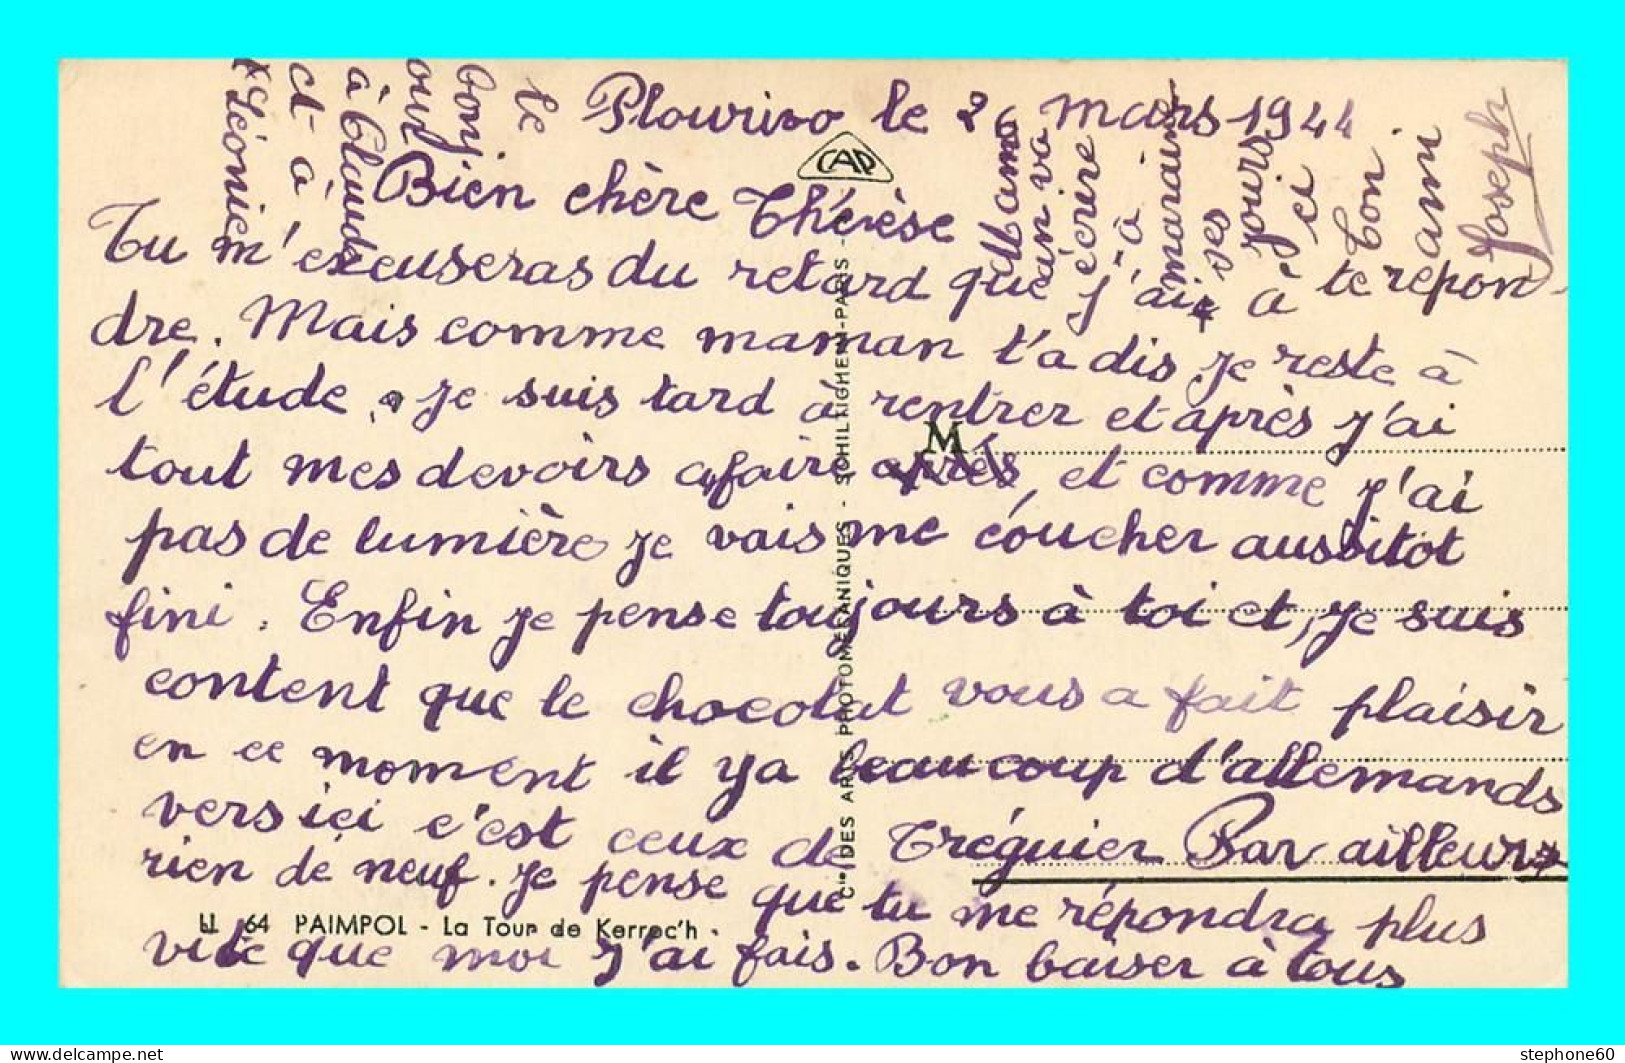 Plourivo le 26 mars 1944.
Bien chère Thérèse
Tu m'excuseras du retard que j'ai à te repon-
dre. Mais comme maman t'a dis je reste à
l'étude, je suis tard à rentrer et après j'ai
tout mes devoirs a faire après, et comme j'ai
pas de lumière je vais me coucher aussitot
fini. Enfin je pense toujours à toi et, je suis
content que le chocolat vous a fait plaisir
en ce moment il ya beaucoup d'allemands
vers ici c'est ceux de Tréguier Par ailleurs
rien de neuf. Je pense que tu me répondra plus
vite que moi j'ai fais. Bon baiser à tous
Mamo
an va
écrire
à
maraine
ses
jours
ci
Ton
ami
Joseph
le
bonj.
our
à Claude
et à
Léonie
CAP
M
Cie DES ARTS PHOTOMÉCANIQUES - SCHILTIGHEIM-PARIS -
LL 64 PAIMPOL - La Tour de Kerroc'h
stephone60